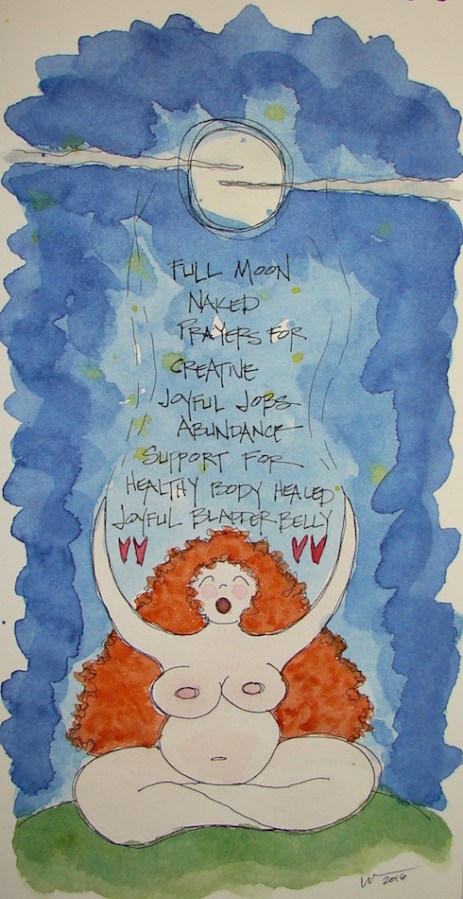 FULL MOON
NAKED
PRAYERS FOR
CREATIVE
JOYFUL JOBS
ABUNDANCE
SUPPORT FOR
HEALTHY BODY HEALED
JOYFUL BLADDER BELLY
2016